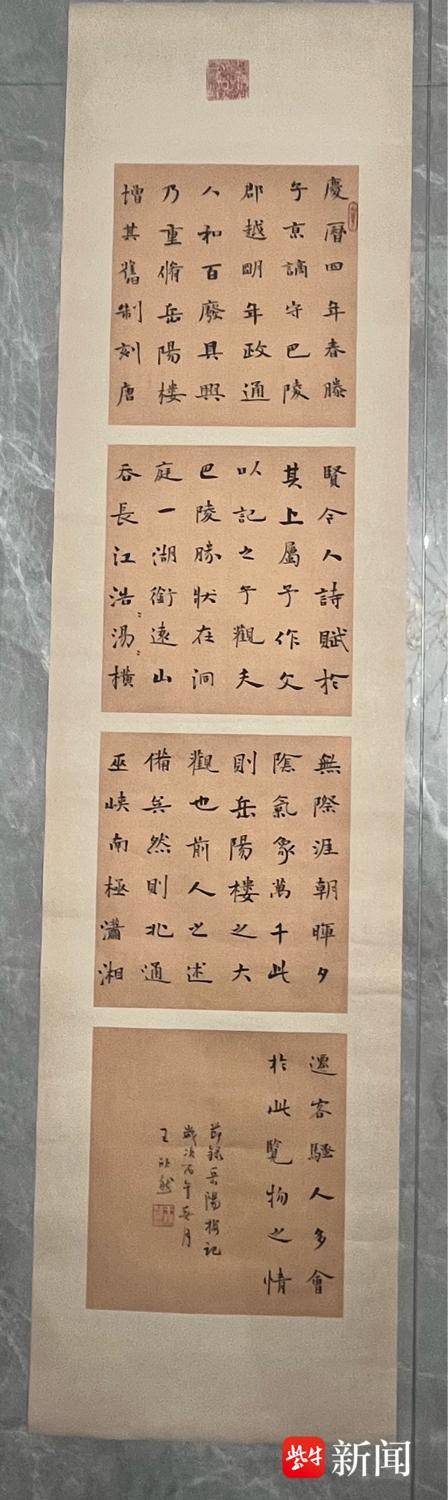 慶曆四年春滕
子京謫守巴陵
郡越明年政通
人和百廢具興
乃重脩岳陽楼
增其舊制刻唐
賢今人詩賦於
其上屬予作文
以記之予觀夫
巴陵勝狀在洞
庭一湖銜遠山
吞長江浩〻湯〻橫
無際涯朝暉夕
陰氣象萬千此
則岳陽樓之大
觀也前人之述
備矣然則北通
巫峽南極瀟湘
遷客騷人多會
於此覽物之情
節録岳陽樓記
歲次丙午春月
王欣然
紫牛新闻